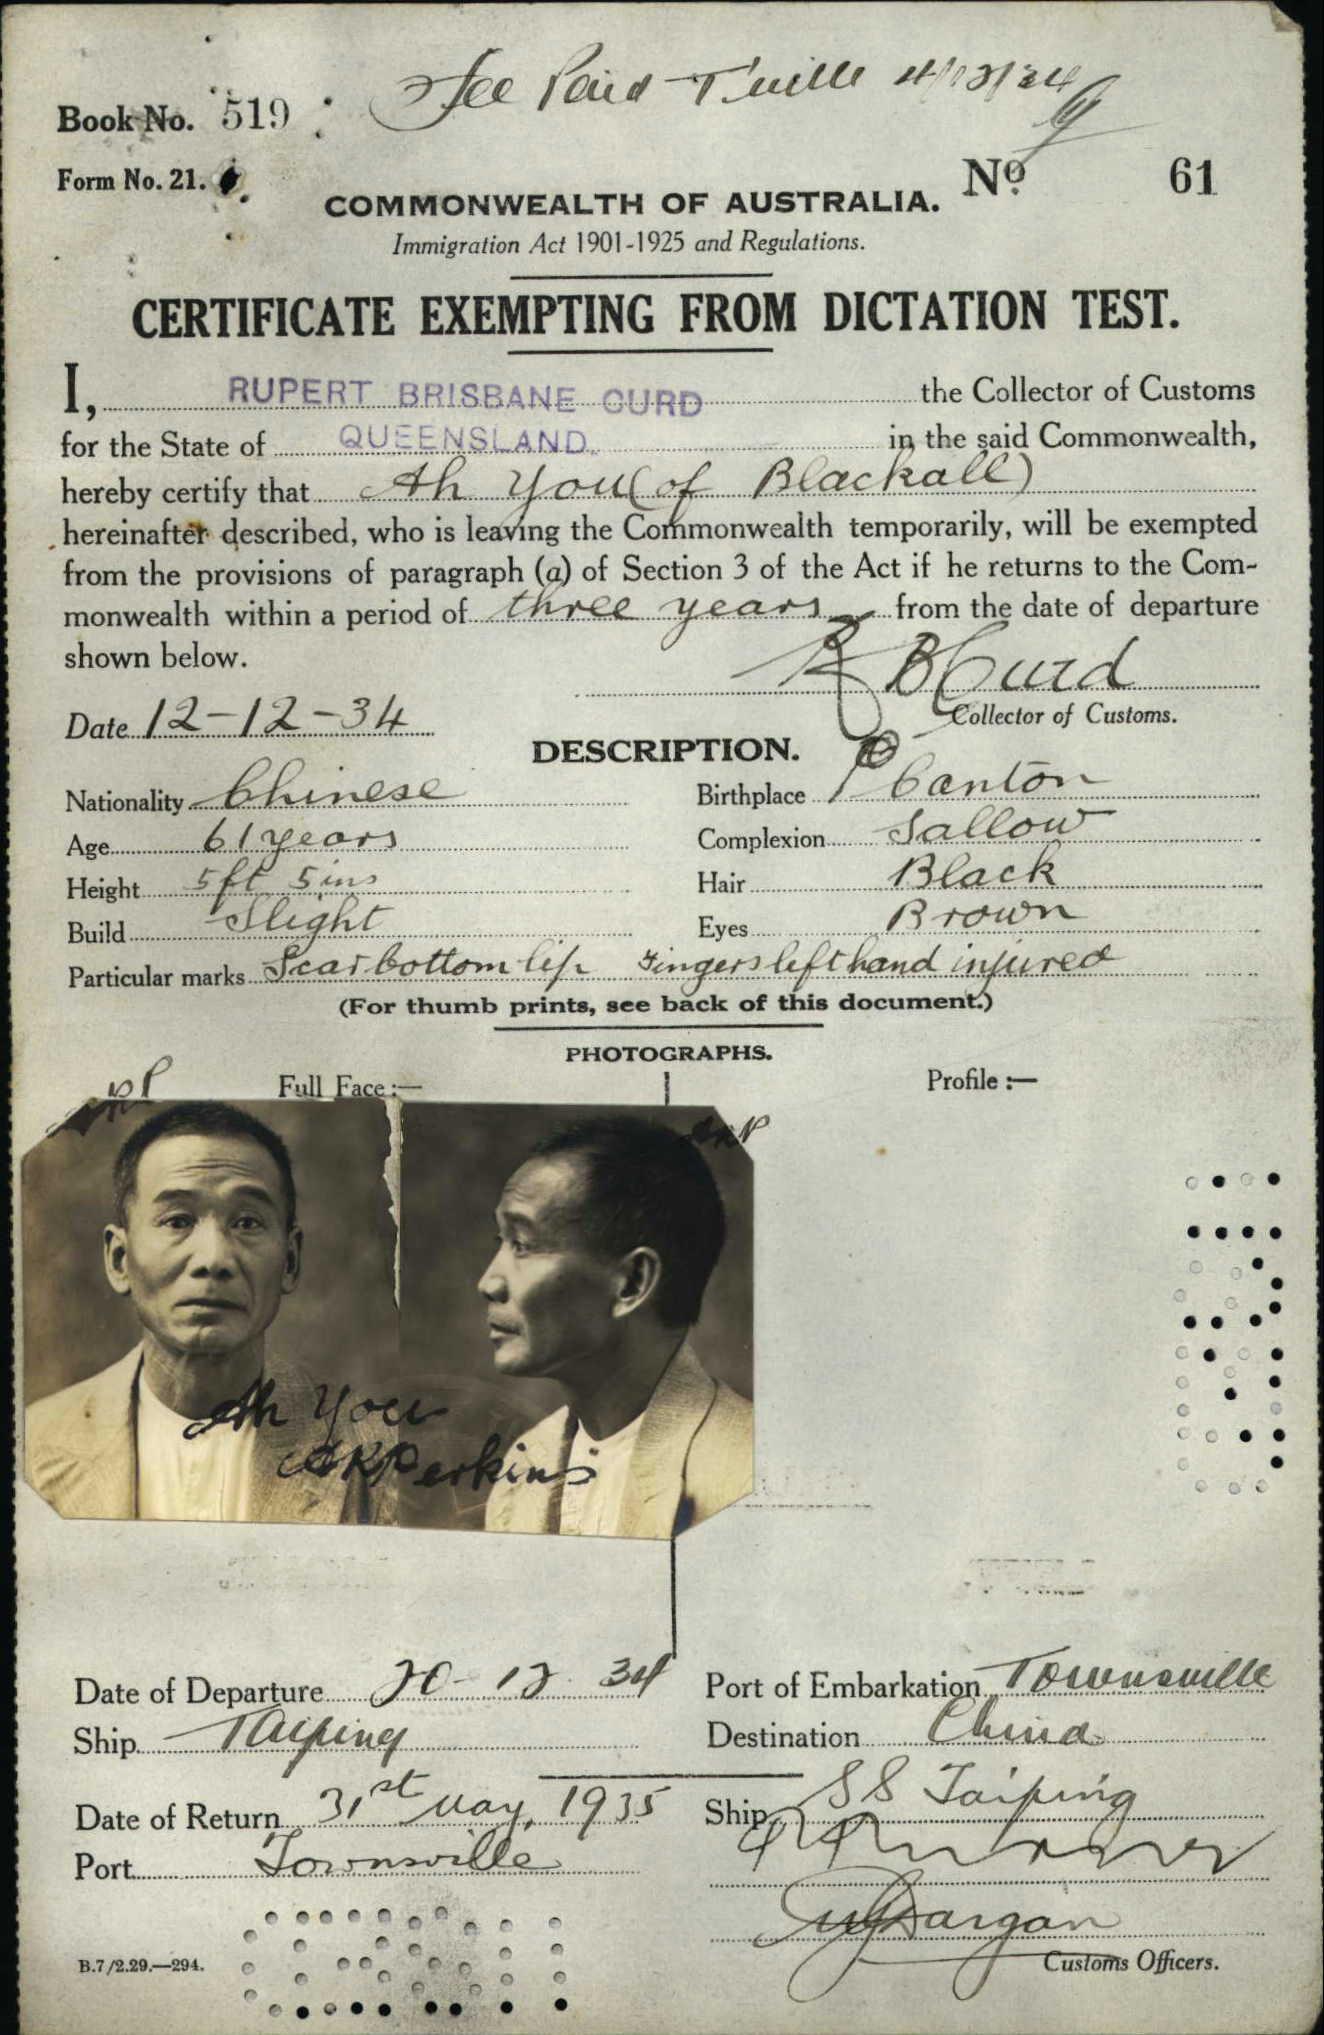 Fee Paid T'ville 4/12/34
Book No. 519
Form No. 21.
No. 61
COMMONWEALTH OF AUSTRALIA.
Immigration Act 1901-1925 and Regulations.
CERTIFICATE EXEMPTING FROM DICTATION TEST.
I, RUPERT BRISBANE CURD the Collector of Customs
for the State of QUEENSLAND. in the said Commonwealth,
hereby certify that Ah You (of Blackall)
hereinafter described, who is leaving the Commonwealth temporarily, will be exempted
from the provisions of paragraph (a) of Section 3 of the Act if he returns to the Com-
monwealth within a period of three years from the date of departure
shown below.
R B Curd
Date 12-12-34
Collector of Customs.
DESCRIPTION.
Nationality Chinese Birthplace Canton
Age 61 years Complexion Sallow
Height 5ft 5ins Hair Black
Build Slight Eyes Brown
Particular marks Scar bottom lip Fingers left hand injured
(For thumb prints, see back of this document.)
PHOTOGRAPHS.
Full Face:— Profile:—
Ah You
Perkins
Date of Departure 20-12 34 Port of Embarkation Townsville
Ship Taiping Destination China
Date of Return 31st May, 1935 Ship SS Taiping
Port Townsville
Dargan
B.7/2.29.—294.
Customs Officers.